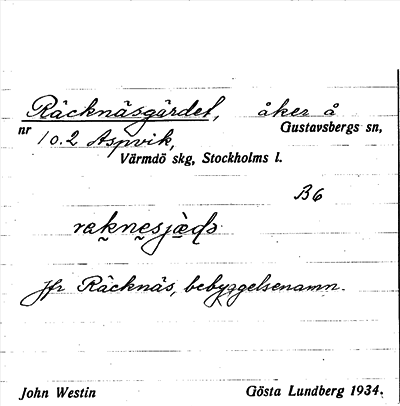 Räcknäsgärdet, åker å
nr 1 o. 2 Aspvik, Gustavsbergs sn,
Värmdö skg, Stockholms l.
B6
jfr Räcknäs, bebyggelsenamn.
John Westin Gösta Lundberg 1934.